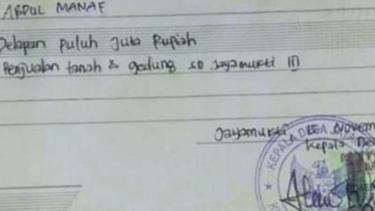 ABDUL MANAF
Delapan puluh Juta Rupiah
Penjualan tanah & gedung SD Jayamukti III
Jayamukti
Kepala
KEPALA DESA